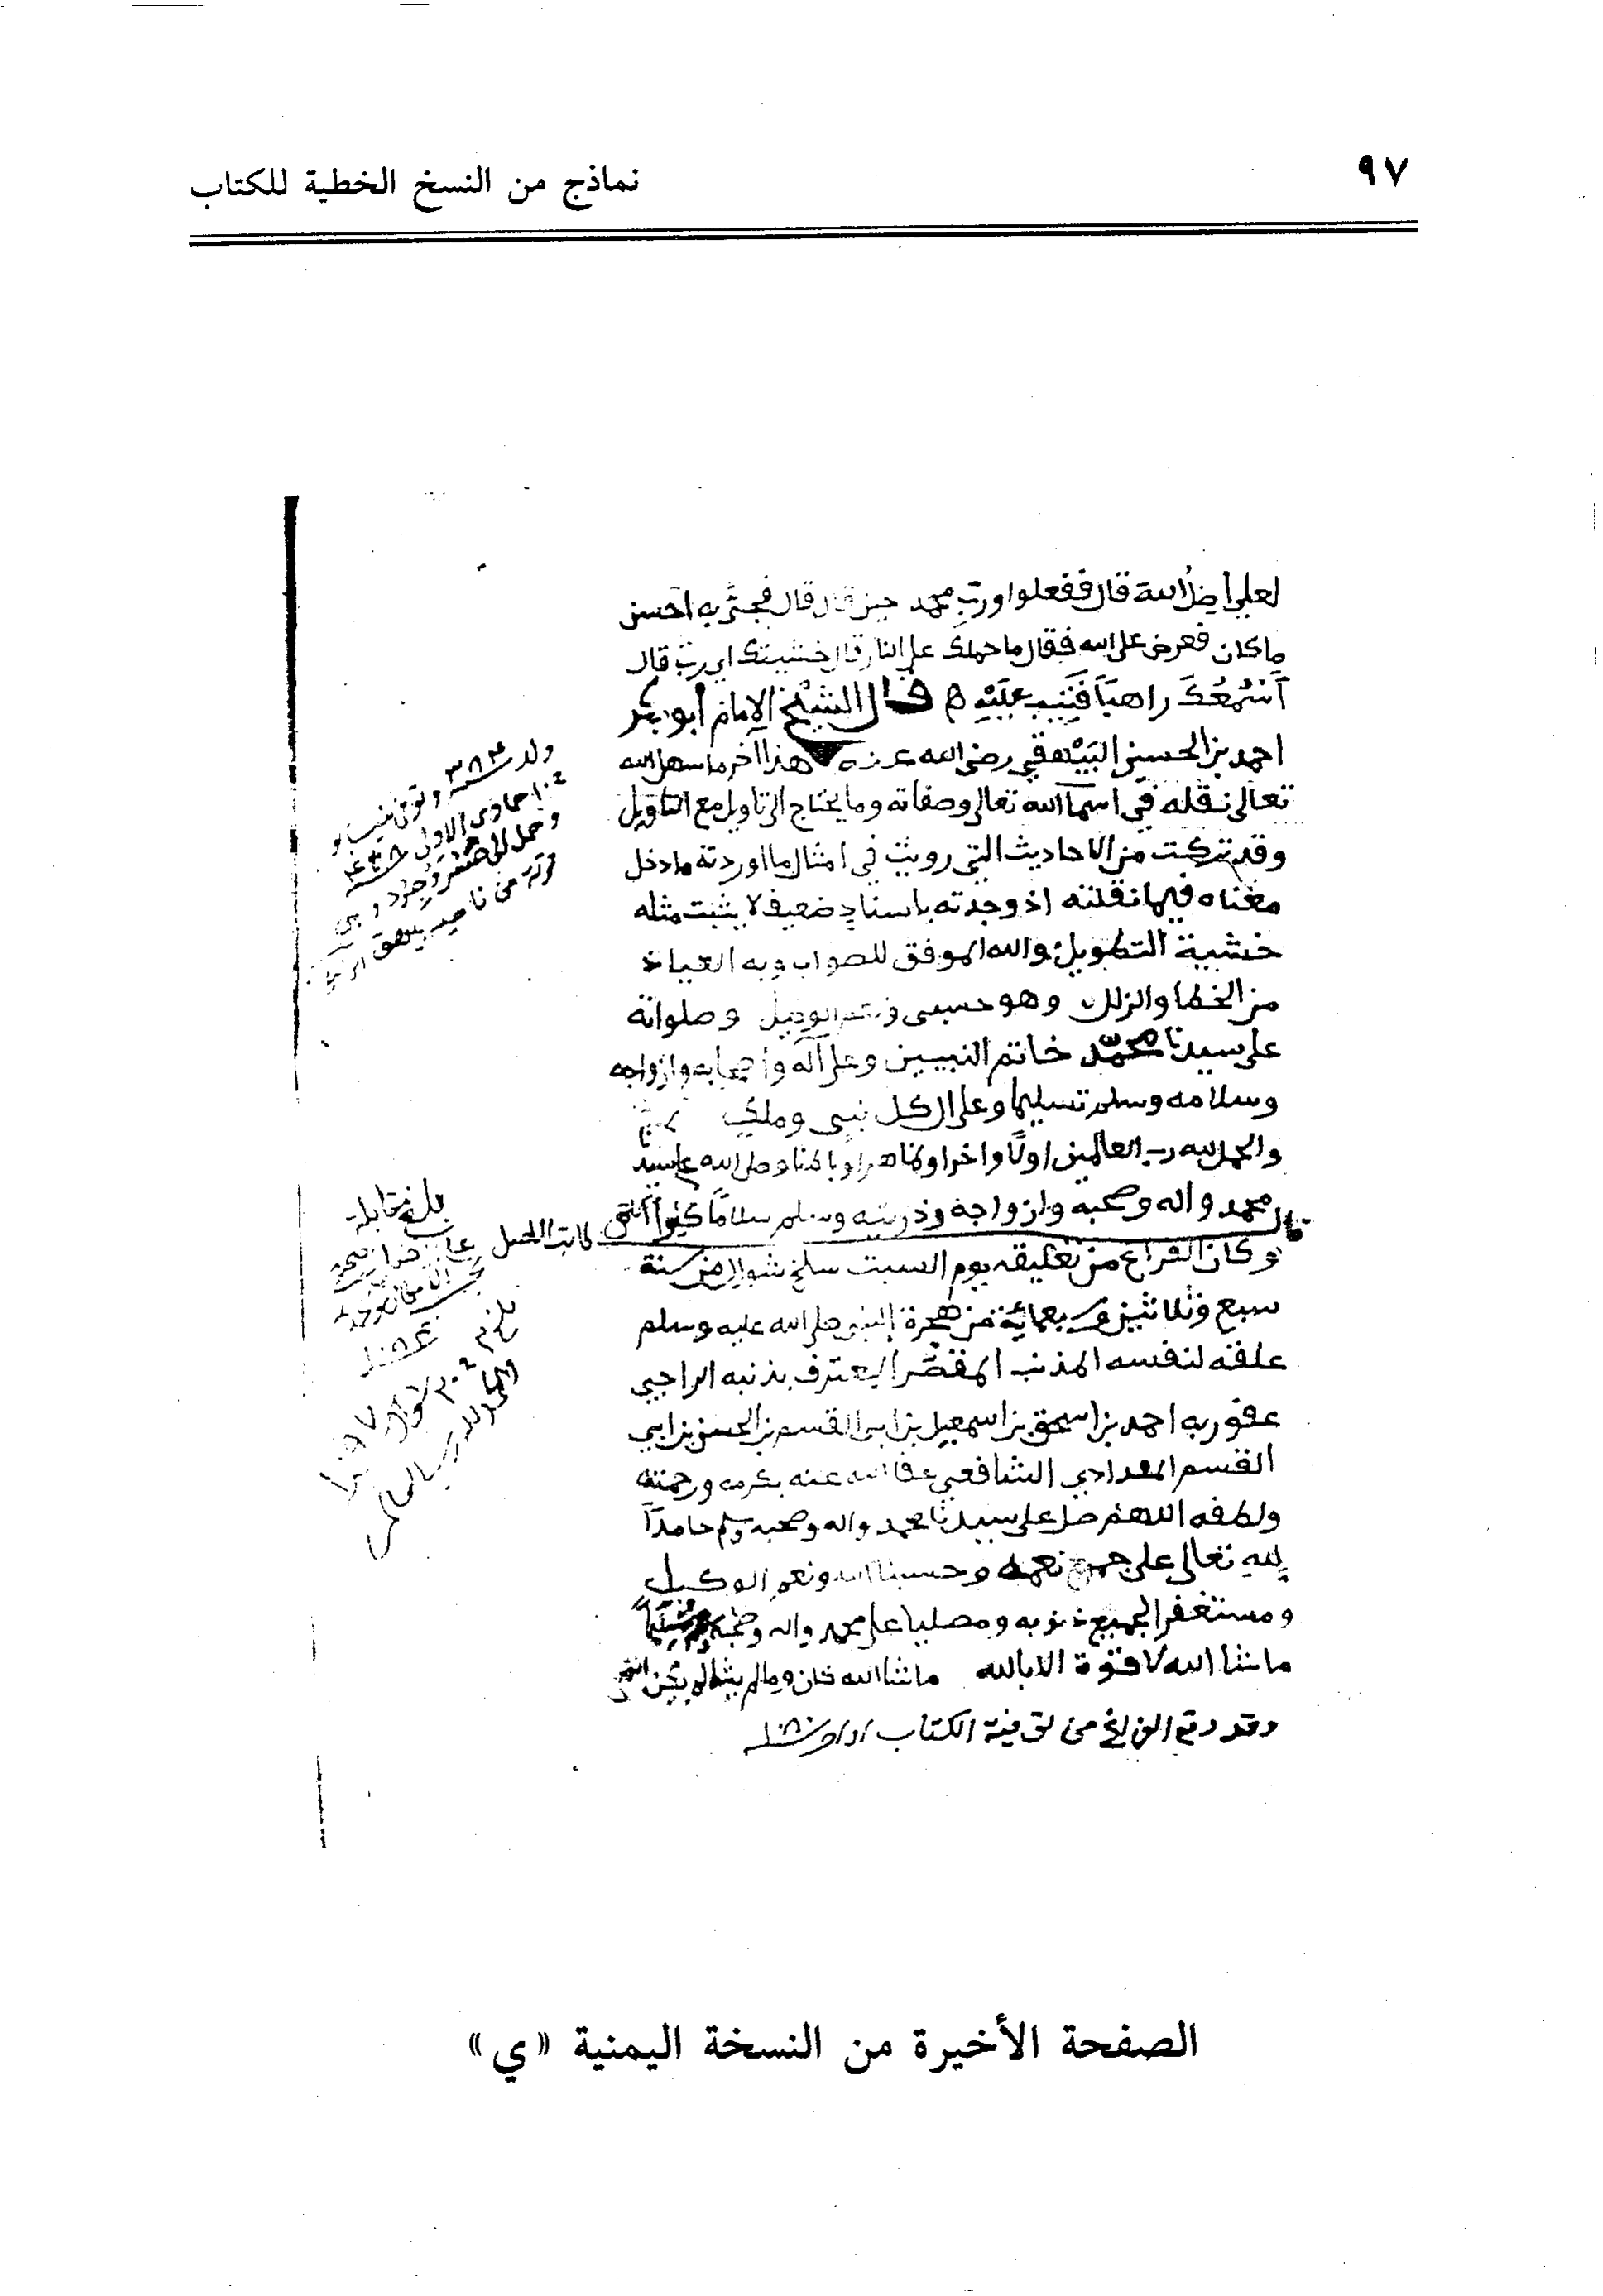 ٩٧
نماذج من النسخ الخطية للكتاب
لعلي اضل الله قال ففعلوا ورب محمد حين قال قال فجئ به احسن
ما كان فعرض على الله فقال ما حملك على النار قال خشيتك اي رب قال
أسمعك راهبا فتيب عليه قال الشيخ الإمام أبو بكر
احمد بن الحسين البيهقي رضي الله عنه هذا آخر ما سهل الله
تعالى نقله في اسما الله تعالى وصفاته وما يحتاج الى تاويل مع التاويل
وقد تركت من الاحاديث التي رويت في امثال ما اوردته ما دخل
معناه فيما نقلته اذ وجدته باسناد ضعيف لا يثبت مثله
خشية التطويل والله الموفق للصواب وبه العياذ
من الخطا والزلل وهو حسبي ونعم الوكيل وصلواته
على سيدنا محمد خاتم النبيين وعلى آله وأصحابه وازواجه
وسلامه وسلم تسليما وعلى ال كل نبي وملك
والحمد لله رب العالمين اولا واخرا وظاهرا وباطنا وصلى الله على سيدنا
محمد واله وصحبه وازواجه وذريته وسلم سلاما كثيرا
قال كاتب الاصل
وكان الفراغ من تعليقه يوم السبت سلخ شوال من سنة
سبع وثلاثين وسبعمائة من هجرة النبي صلى الله عليه وسلم
علقه لنفسه المذنب المقصر المعترف بذنبه الراجي
عفو ربه احمد بن اسحق بن اسمعيل بن ابي القسم بن الحسن بن ابي
القسم البغدادي الشافعي عفا الله عنه بكرمه ورحمته
ولطفه اللهم صل على سيدنا محمد واله وصحبه وسلم حامدا
لله تعالى على جميع نعمه وحسبنا الله ونعم الوكيل
ومستغفرا لجميع ذنوبه ومصليا على محمد واله وصحبه
ما شا الله لا قوة الا بالله ما شا الله كان وما لم يشا لم يكن انتهى
وقد وقع الفراغ من الكتاب
ولد سنة ٣٨٤ وتوفي بنيسابور
١٠ جمادى الاولى سنة ٤٥٨
وحمل الى خسروجرد وهي
قرية من ناحية بيهق
بلغ مقابلة
الحمد لله رب العالمين
الصفحة الأخيرة من النسخة اليمنية «ي»